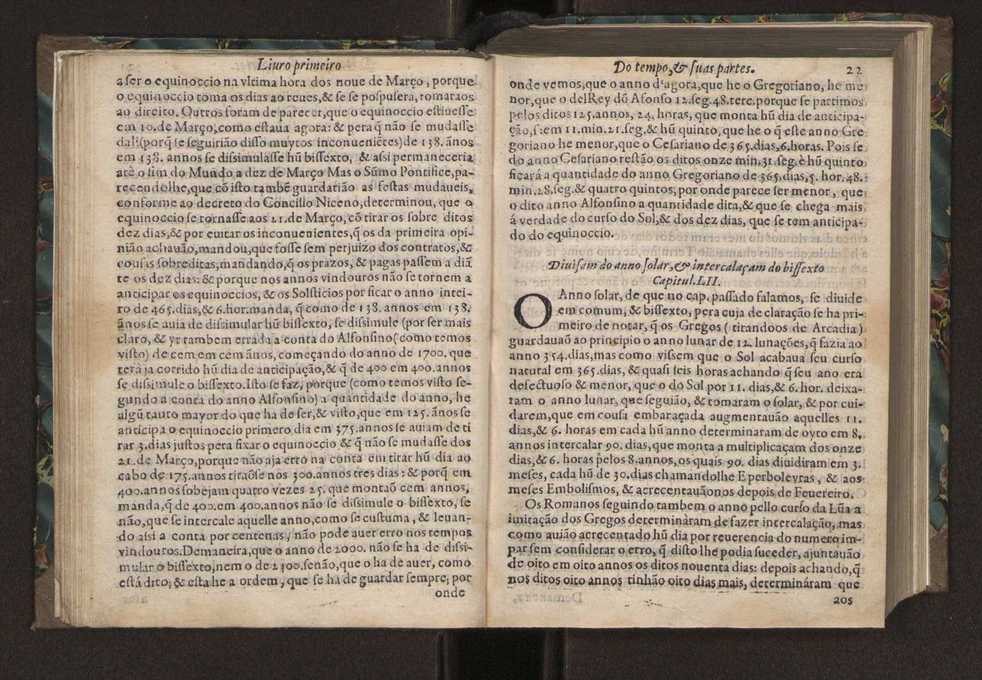 Liuro primeiro
a ser o equinoccio na vltima hora dos noue de Março, porque
o equinoccio toma os dias ao reues, & se se pospusera, tomaraos
ao direito. Outros foram de parecer, que o equinoccio estiuesse
em 10. de Março, como estaua agora: & pera q̃ não se mudasse
dali (porq̃ se seguirião disso muytos inconuenietes) de 138. ãnos
em 138. annos se dissimulasse hũ bissexto, & assi permaneceria
atè o fim do Mundo a dez de Março Mas o Sũmo Pontifice, pa-
recendolhe, que cõ isto tambẽ guardarião as festas mudaueis,
conforme ao decreto do Concilio Niceno, determinou, que o
equinoccio se tornasse aos 21. de Março, cõ tirar os sobre ditos
dez dias, & por euitar os inconuenientes, q̃ os da primeira opi-
nião achauão, mandou, que fosse sem perjuizo dos contratos, &
cousas sobreditas, mandando, q̃ os prazos, & pagas passem a diã
te os dez dias: & porque nos annos vindouros não se tornem a
anticipar os equinoccios, & os Solsticios por ficar o anno intei-
ro de 465. dias, & 6. hor. manda, q̃ como de 138. annos em 138.
ãnos se auia de disimular hũ bissexto, se dissimule (por ser mais
claro, & yr tambem errada a conta do Alfonsino (como temos
visto) de cem em cem ãnos, começando do anno de 1700. que
terá ja corrido hũ dia de anticipação, & q̃ de 400 em 400. annos
se dissimule o bissexto. Isto se faz, porque (como temos visto se-
gundo a conta do anno Alfonsino) a quantidade do anno, he
algũ tauto mayor do que ha de ser, & visto, que em 125. ãnos se
anticipa o equinoccio primero dia em 375. annos se auiam de ti
rar 3. dias justos pera fixar o equinoccio & q̃ não se mudasse dos
21. de Março, porque não aja erro na conta em titar hũ dia ao
cabo de 175. annos tiraõse nos 300. annos tres dias: & porq̃ em
400. annos sobejam quatro vezes 25. que montaõ cem annos,
manda, q̃ de 400. em 400. annos não se dissimule o bissexto, se
não, que se intercale aquelle anno, como se custuma, & leuan-
do assi a conta por centenas, não pode auer erro nos tempos
vindouros. Demaneira, que o anno de 2000. não se ha de dissi-
mular o bissexto, nem o de 2300. senão, que o ha de auer, como
està dito; & esta he a ordem, que se ha de guardar sempre; por
onde
Do tempo, & suas partes. 22
onde vemos, que o anno d'agora, que he o Gregoriano, he me
nor, que o delRey dũ Afonso 12. seg. 48. terc. porque se partimos
pelos ditos 125. annos, 24. horas, que monta hũ dia de anticipa-
ção, s: em 11. min. 21. seg. & hũ quinto, que he o q̃ este anno Gre
goriano he menor, que o Cesariano de 365. dias, 6. horas. Pois se
do anno Cesariano restão os ditos onze min. 31. seg. è hũ quinto
ficará a quantidade do anno Gregoriano de 365. dias, 5. hor. 48.
min. 28. seg. & quatro quintos, por onde parece ser menor, que
o dito anno Alfonsino a quantidade dita, & que se chega mais
á verdade do curso do Sol, & dos dez dias, que se tem anticipa-
do do equinoccio.
Diuisam do anno solar, & intercalaçam do bissexto
Capitul. LII.
O Anno solar, de que no cap. passado falamos, se diuide
em comum, & bissexto, pera cuja de claração se ha pri-
meiro de notar, q̃ os Gregos (titandoos de Arcadia)
guardauaũ ao principio o anno lunar de 12. lunações, q̃ fazia ao
anno 354. dias, mas como vissem que o Sol acabaua seu curso
natural em 365. dias, & quasi seis horas achando q̃ seu ano era
defectuoso & menor, que o do Sol por 11. dias, & 6. hor. deixa-
ram o anno lunar, que seguião, & tomaram o solar, & por cui-
darem, que em cousa embaraçada augmentauão aquelles 11.
dias, & 6. horas em cada hũ anno determinaram de oyto em 8.
annos intercalar 90. dias, que monta a multiplicaçam dos onze
dias, & 6. horas pelos 8. annos, os quais 90. dias diuidiram em 3.
meses, cada hũ de 30. dias chamandolhe E perboleyras, & aos
meses Embolismos, & acrecentauãonos depois de Feuereiro.
Os Romanos seguindo tambem o anno pello curso da Lũa a
imitação dos Gregos determináram de fazer intercalação, mas
como auião acrecentado hũ dia por reuerencia do numero im-
par sem considerar o erro, q̃ disto lhe podia suceder, ajuntauão
de oito em oito annos os ditos nouenta dias: depois achando, q̃
nos ditos oito annos tinhão oito dias mais, determináram que
205